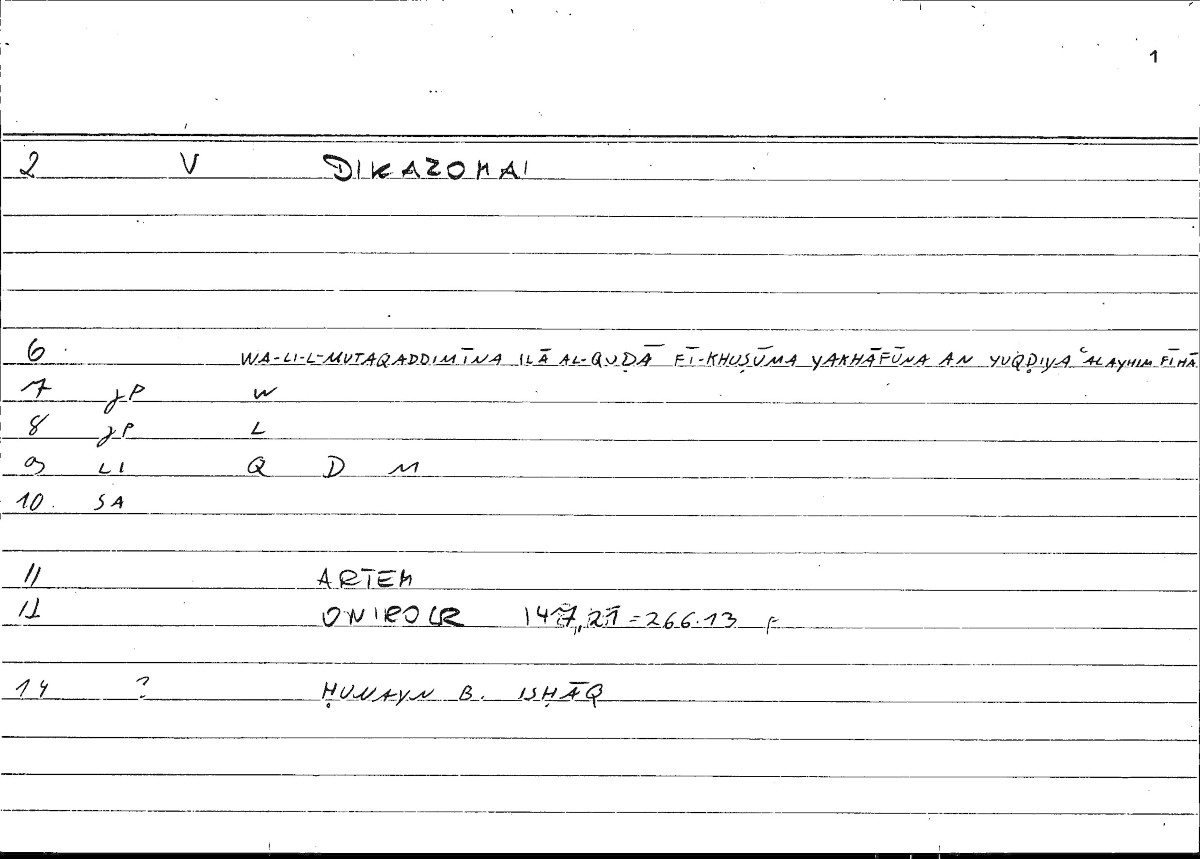 1
2 V DIKAZOMAI
6 WA-LI-L-MUTAQADDIMĪNA ILĀ AL-QUḌĀ FĪ-KHUṢŪMA YAKHĀFŪNA AN YUQḌIYA ʿALAYHIM FĪHĀ
7 JP W
8 JP L
9 LI Q D M
10. SA
11 ARTEM
12 ONIROCR 147,21=266.13 F
14 ? ḤUNAYN B. ISḤĀQ